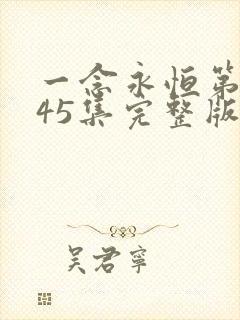 一念永恒第
45集完整版
吴君宁